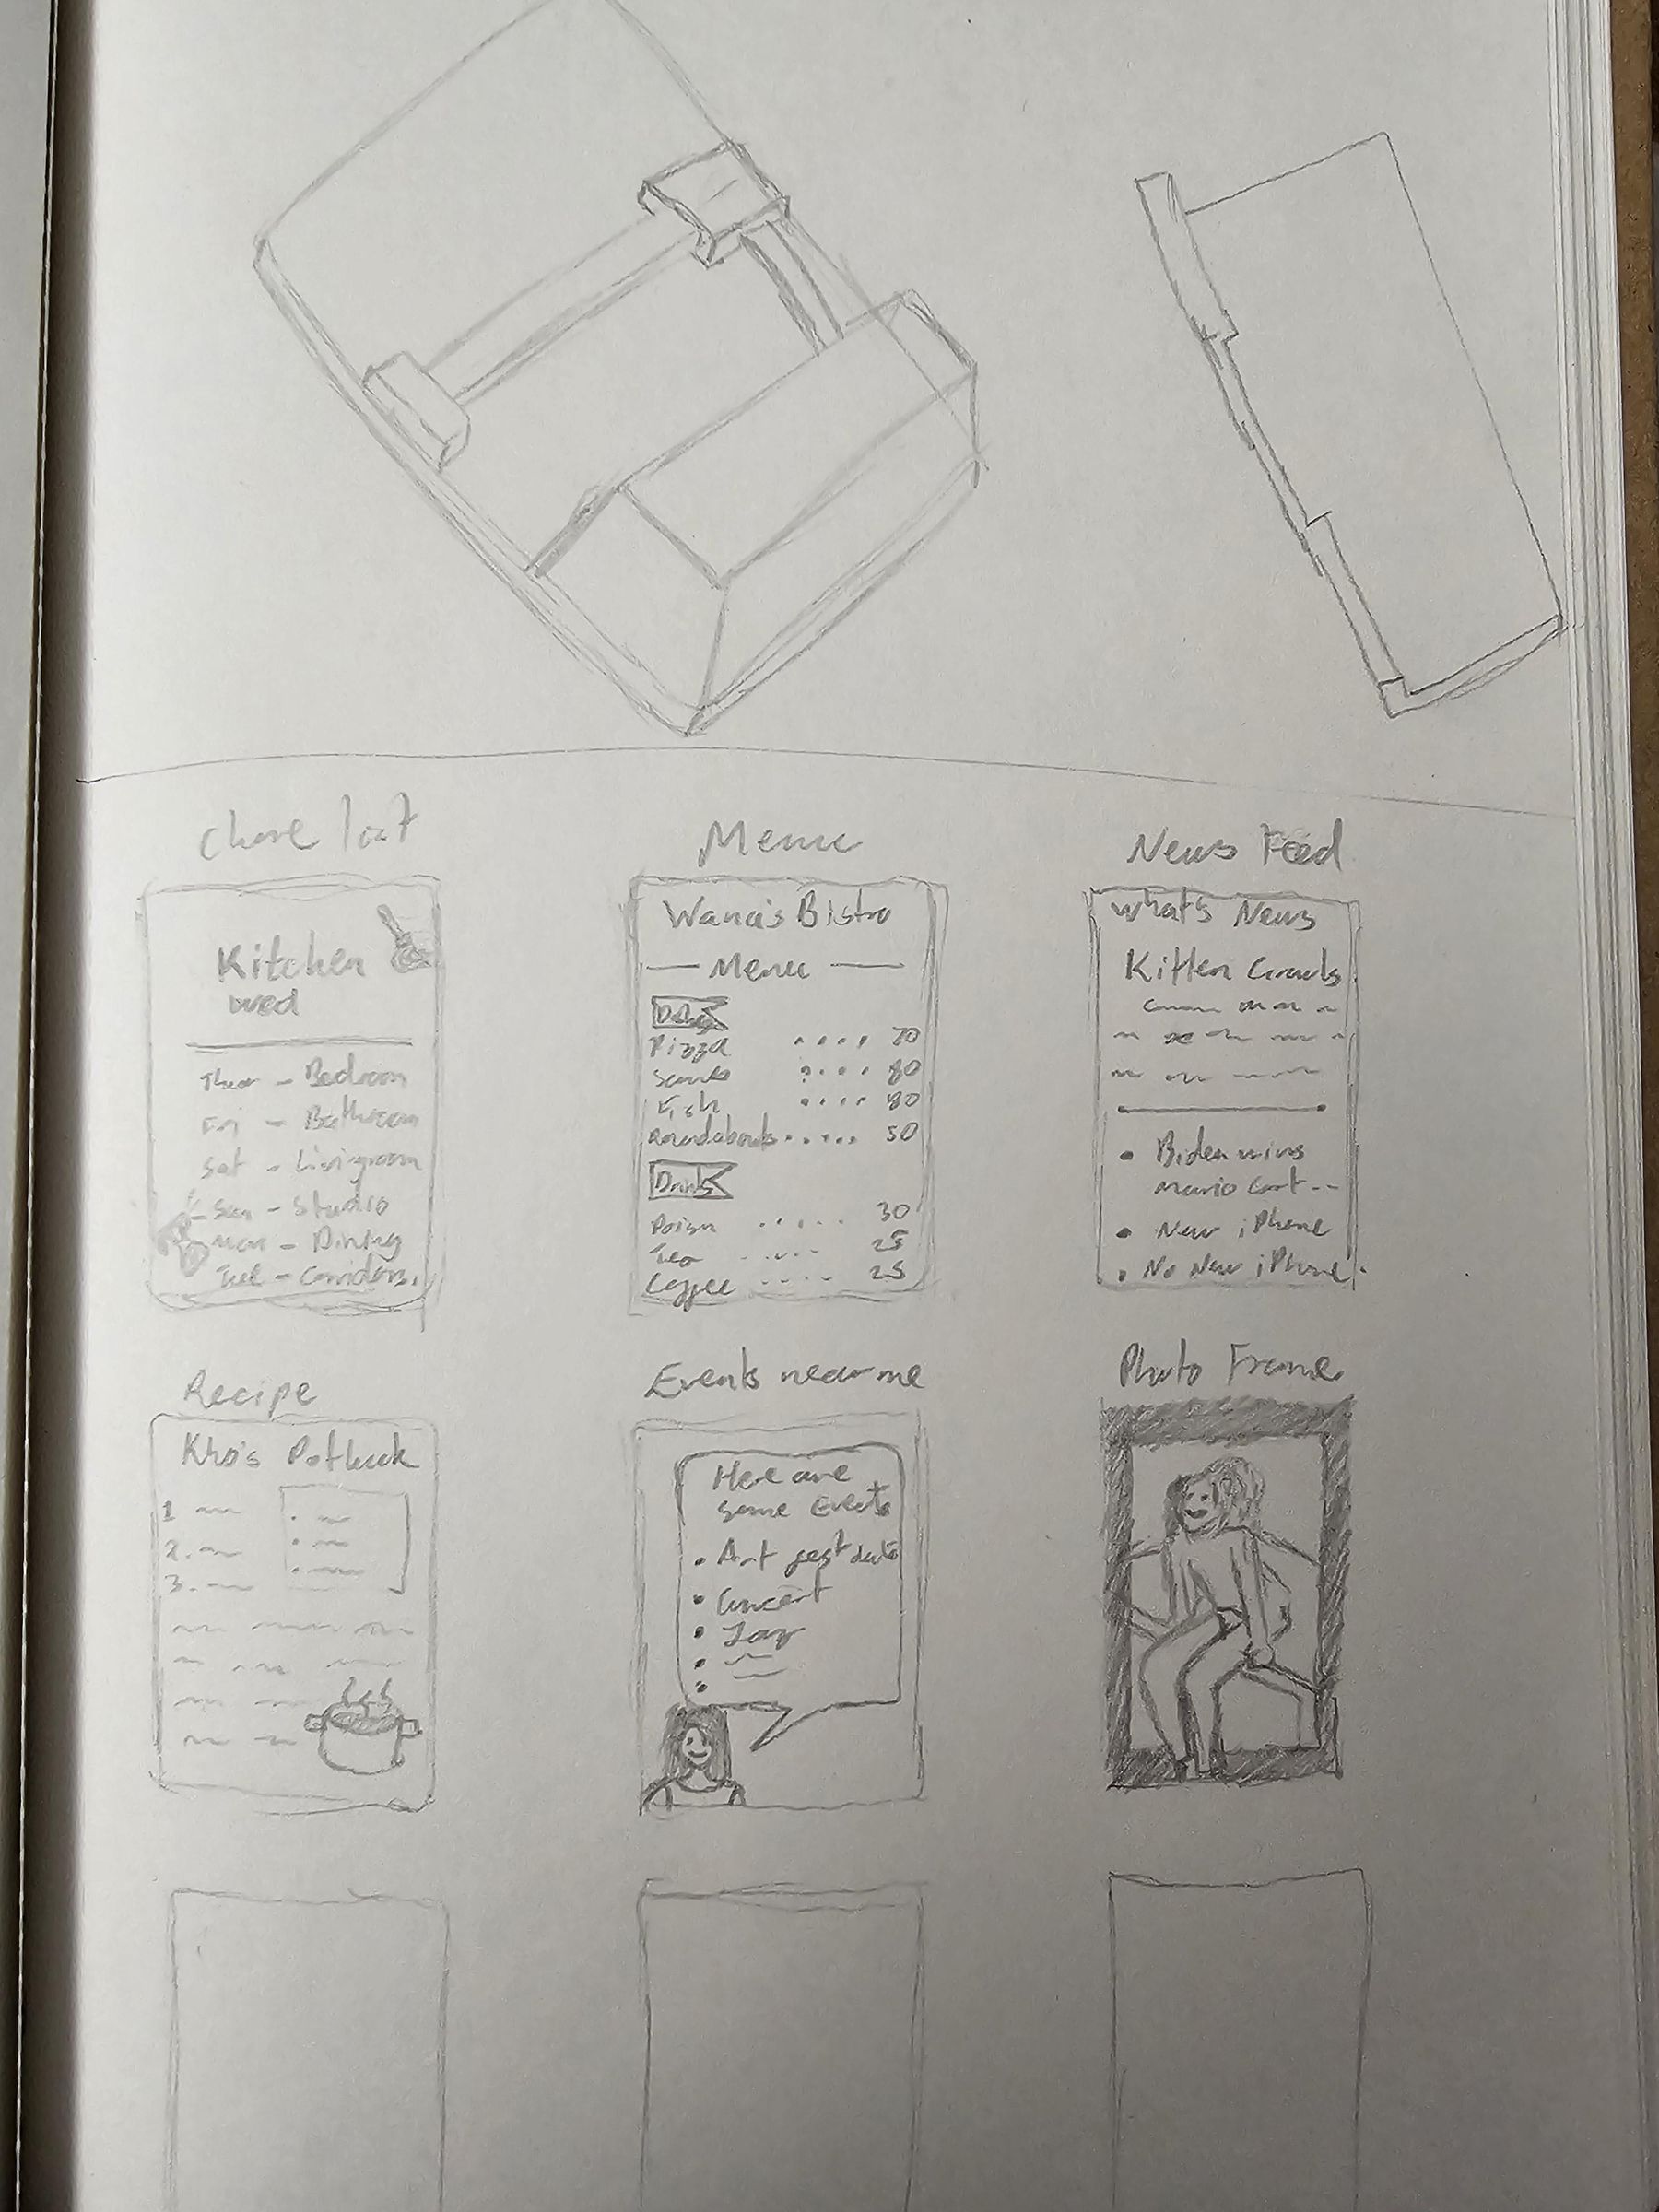 Chore list
Kitchen
wed
Thur - Bedroom
Fri - Bathroom
Sat - Livingroom
Sun - Studio
Mon - Dining
Tue - Corridors
Menu
Bistro
Menu
Pizza ..... 70
..... 80
Fish ..... 80
Roundabouts ..... 50
Drinks
..... 30
Tea ..... 25
Coffee ..... 25
News Feed
What's News
Kitten Crawls
• Biden wins
Mario Cart --
• New iPhone
• No New iPhone
Recipe
Potluck
1
2.
3.
Events near me
Here are
some Events
• Art fest date
• Concert
Photo Frame